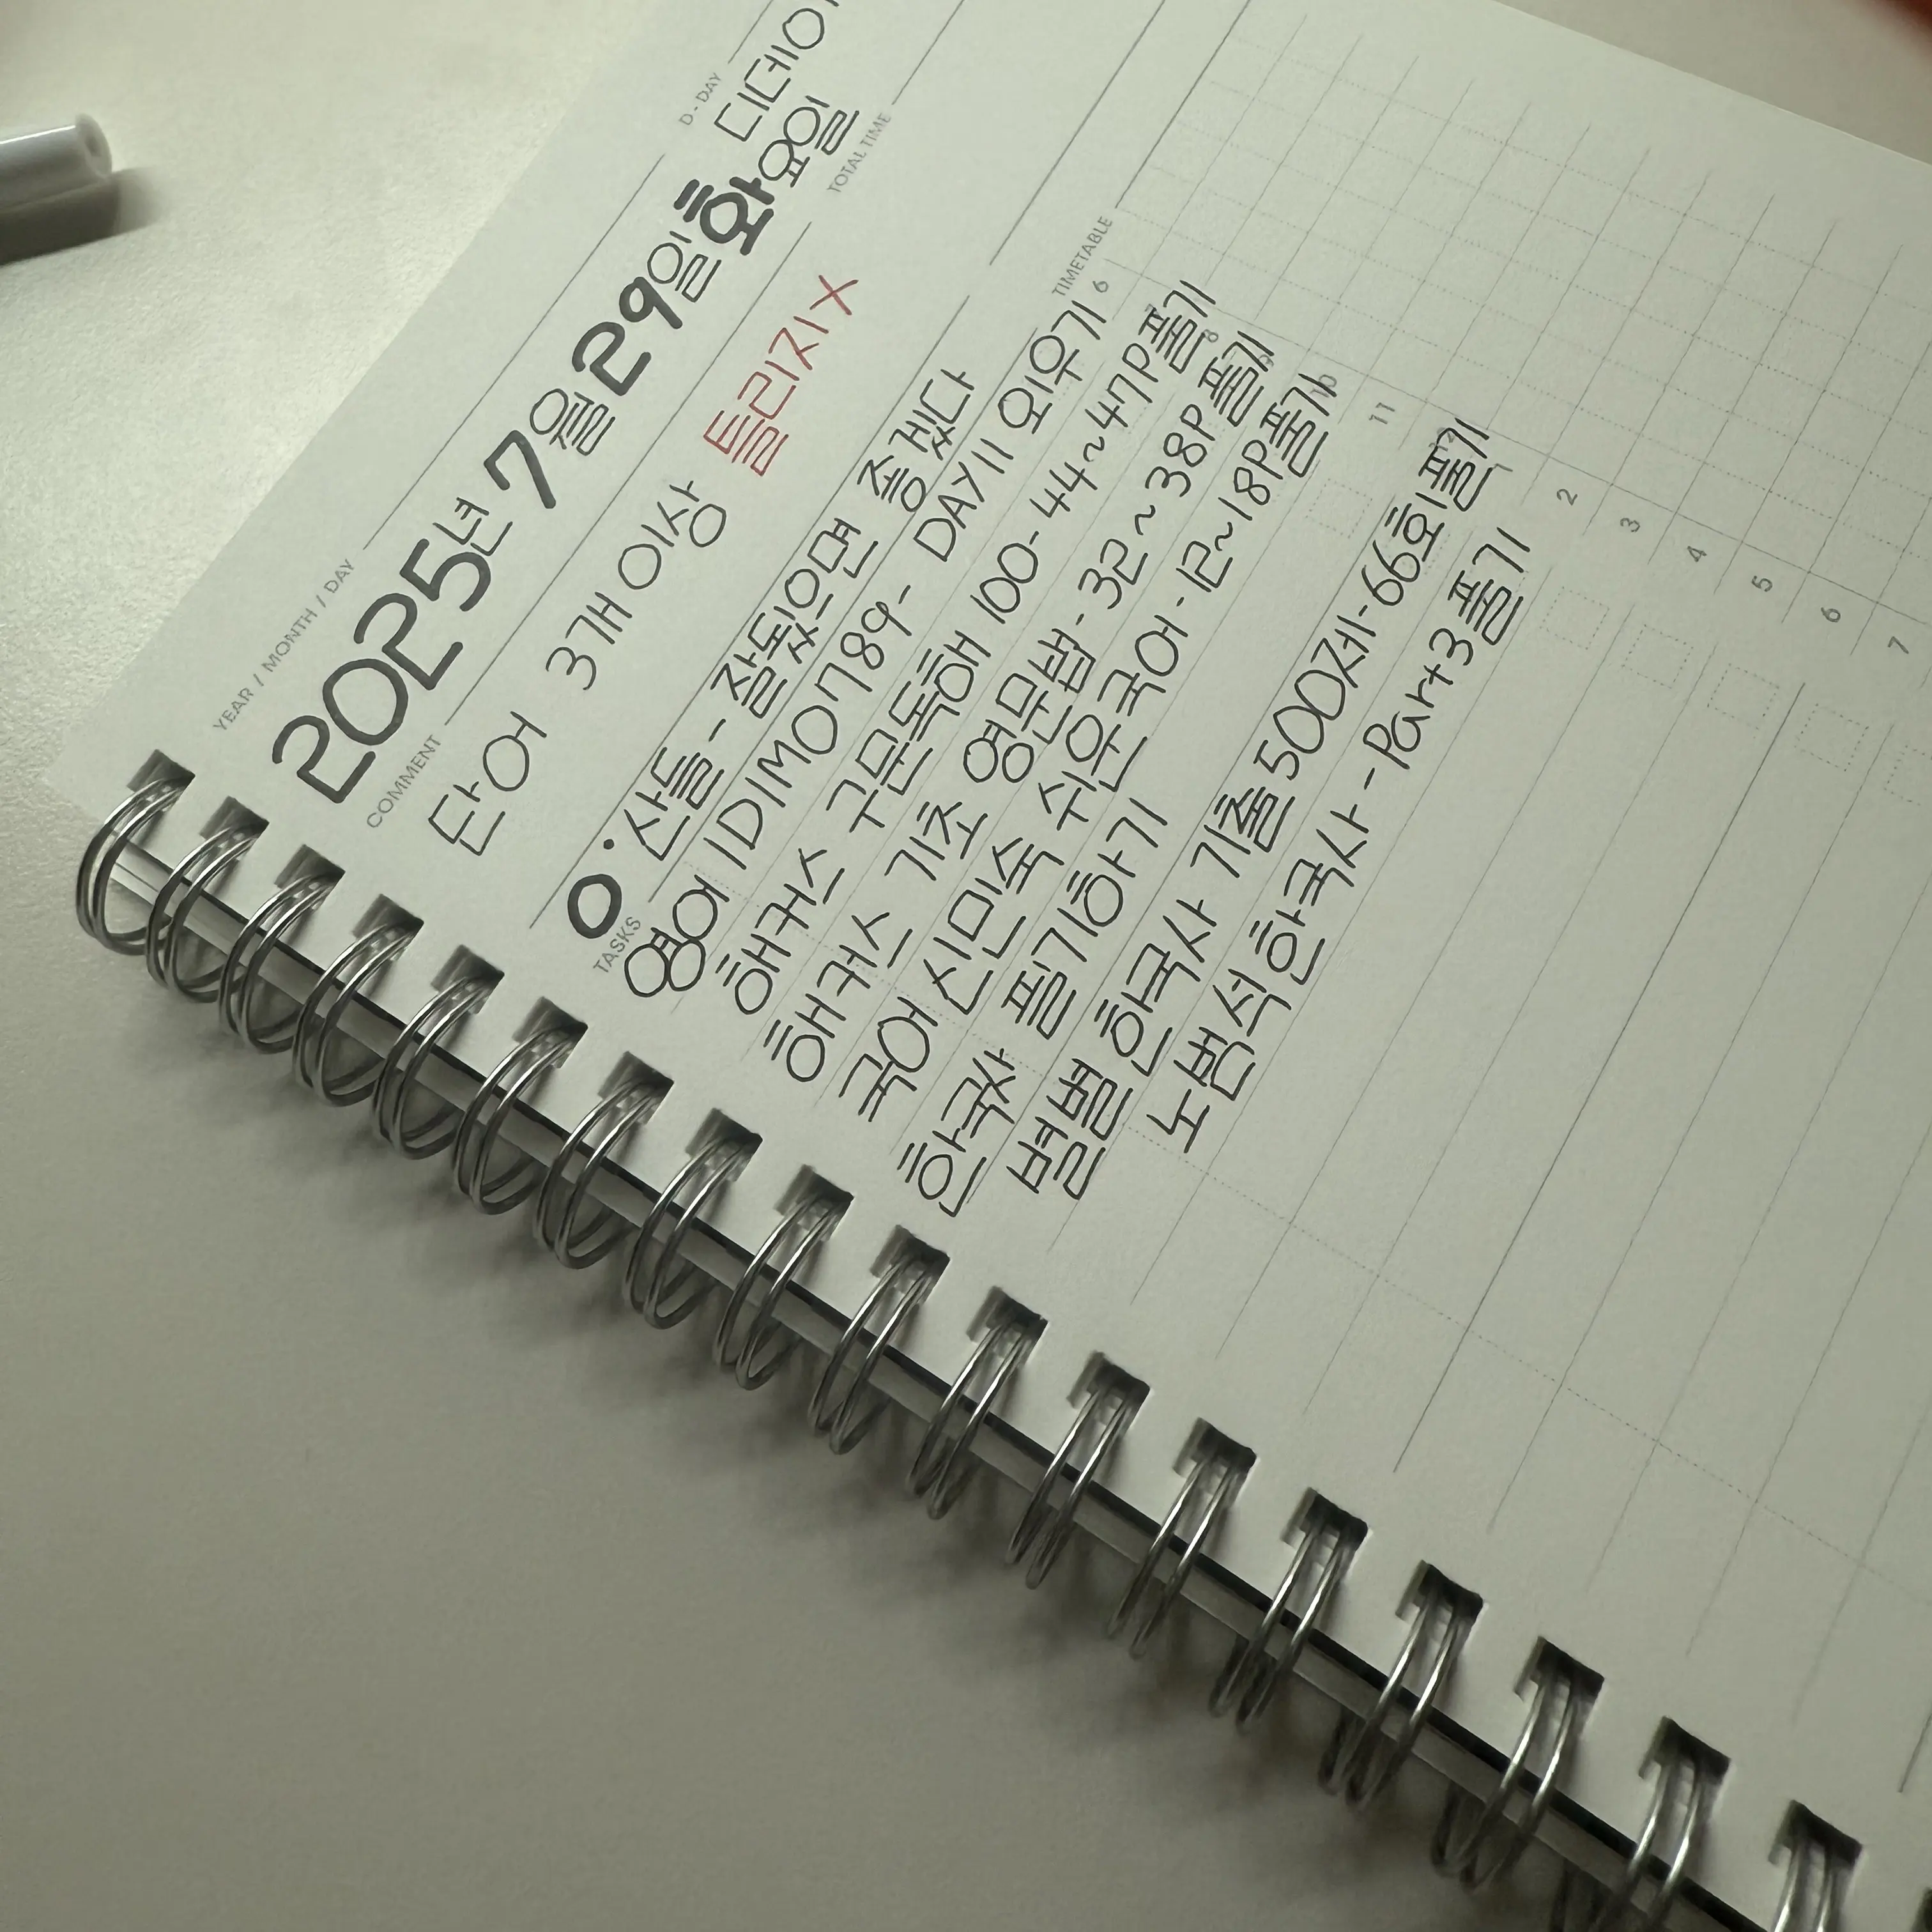 YEAR / MONTH / DAY
D-DAY
2025년 7월 29일 화요일
디데이
COMMENT
TOTAL TIME
단어 3개 이상 틀리지 X
O · 산들 - 잘됐으면 좋겠다
TASKS
TIMETABLE
영어 1DIMO789 - DAY11 외우기
해커스 구문독해 100 - 44~47P 풀기
해커스 기초 영문법 - 32~38P 풀기
국어 신민숙 쉬운국어 - 12~18P 풀기
한국사 필기하기
별별 한국사 기출 500제 - 66회 풀기
노범석 한국사 - Part3 풀기
6
8
10
11
1
2
3
4
5
6
7